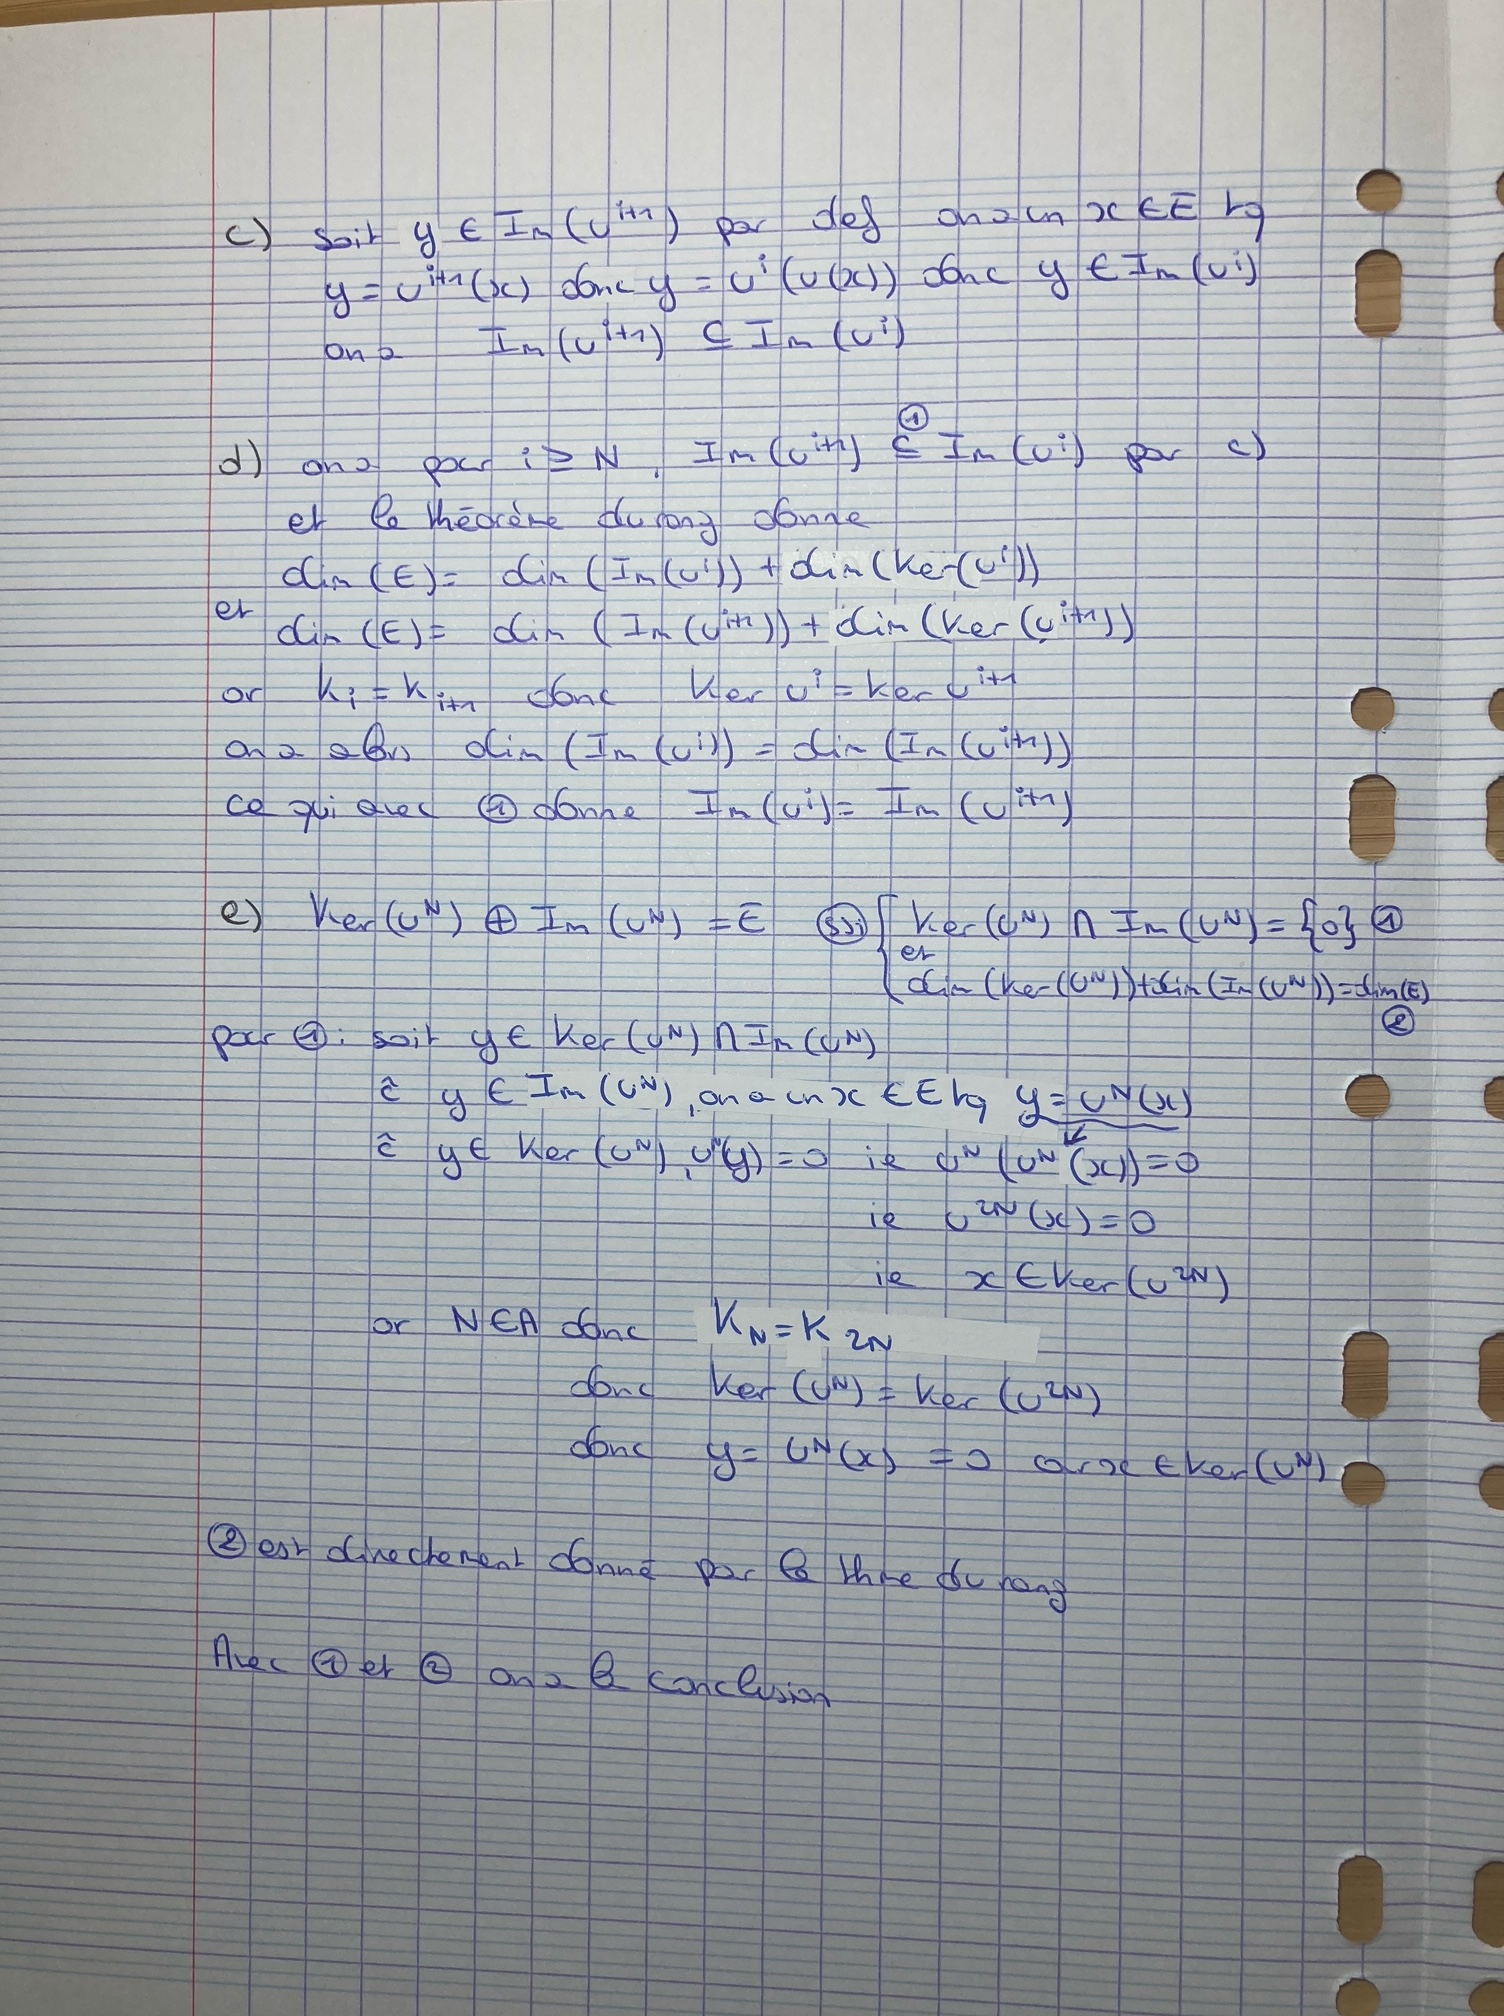 c) soit y ∈ Im(u^{i+1}) par def on a un x ∈ E tq
y = u^{i+1}(x) donc y = u^i(u(x)) donc y ∈ Im(u^i)
on a Im(u^{i+1}) ⊆ Im(u^i)
d) on a pour i ≥ N, Im(u^{i+1}) ⊆^{①} Im(u^i) par c)
et le théorème du rang donne
dim(E) = dim(Im(u^i)) + dim(Ker(u^i))
et dim(E) = dim(Im(u^{i+1})) + dim(Ker(u^{i+1}))
or K_i = K_{i+1} donc Ker u^i = Ker u^{i+1}
on a alors dim(Im(u^i)) = dim(Im(u^{i+1}))
ce qui avec ① donne Im(u^i) = Im(u^{i+1})
e) Ker(u^N) ⊕ Im(u^N) = E ssi { Ker(u^N) ∩ Im(u^N) = {0} ①
et
dim(Ker(u^N)) + dim(Im(u^N)) = dim(E)
②
pour ①: soit y ∈ Ker(u^N) ∩ Im(u^N)
c̄ y ∈ Im(u^N), on a un x ∈ E tq y = u^N(x)
c̄ y ∈ Ker(u^N), u^N(y) = 0 ie u^N(u^N(x)) = 0
ie u^{2N}(x) = 0
ie x ∈ Ker(u^{2N})
or N ∈ A donc K_N = K_{2N}
donc Ker(u^N) = Ker(u^{2N})
donc y = u^N(x) = 0 car x ∈ Ker(u^N)
② est directement donné par le thme du rang
Avec ① et ② on a la conclusion